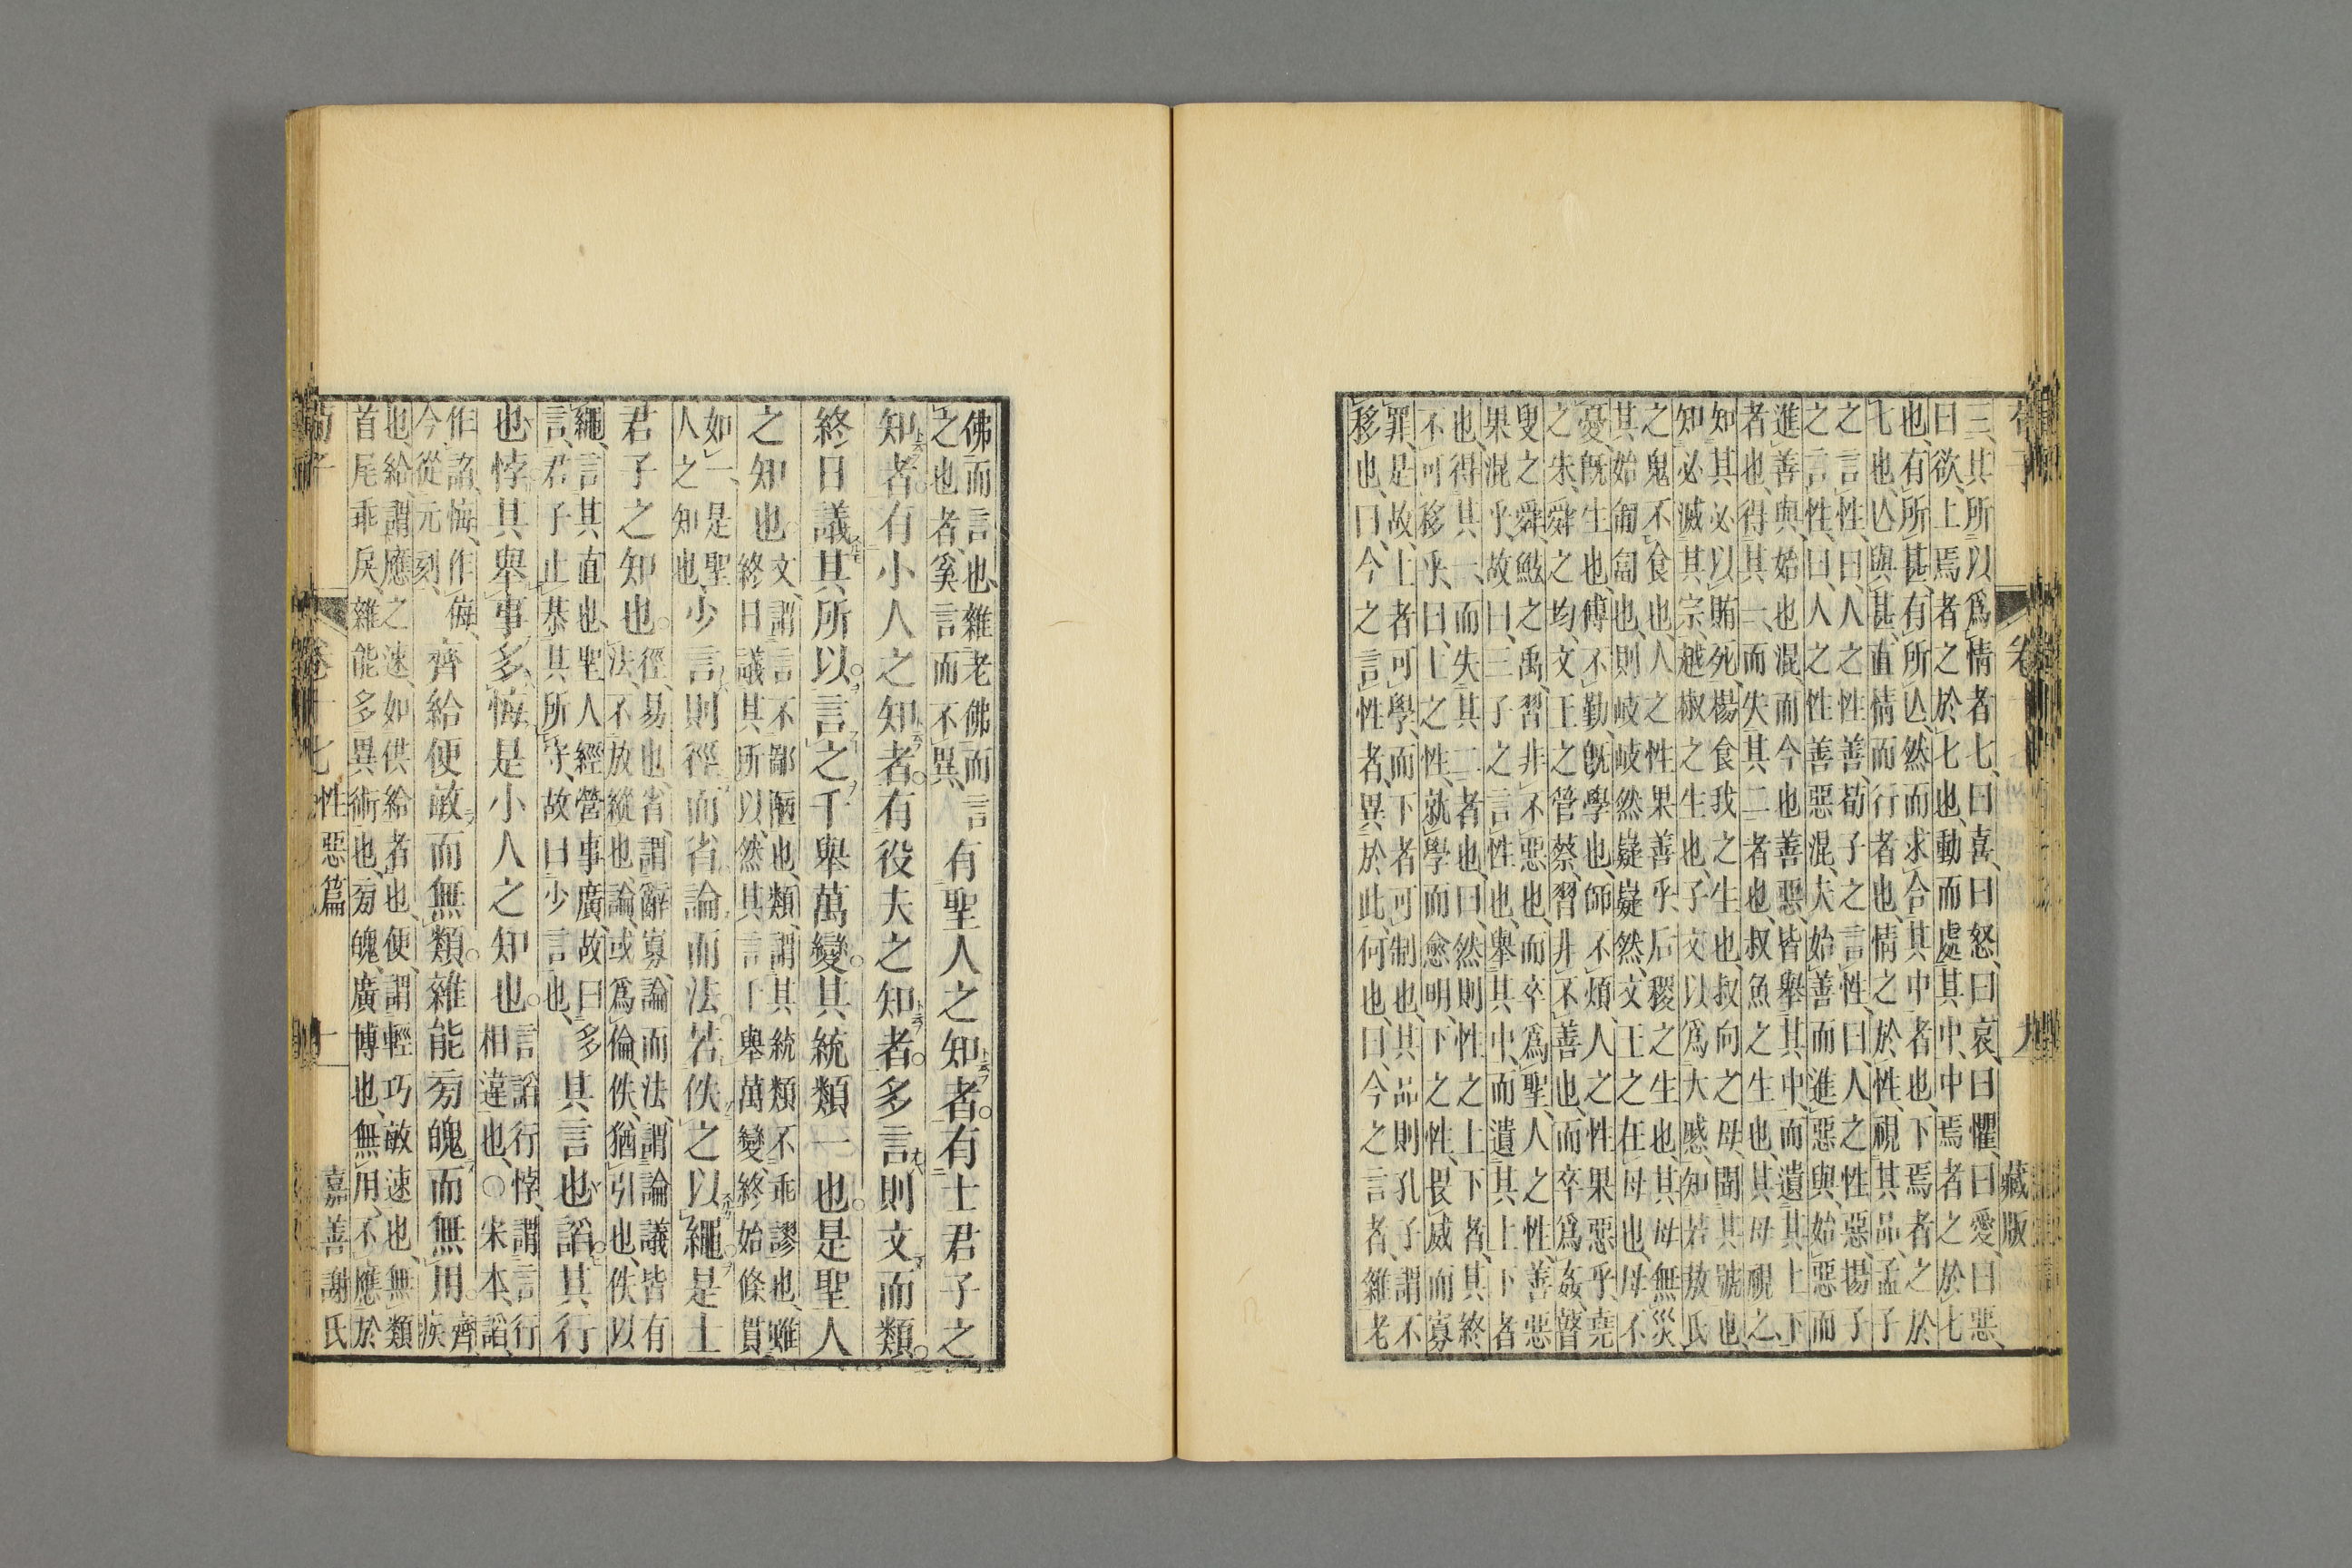 三、其所以爲情者七、曰喜、曰怒、曰哀、曰懼、曰愛、曰惡、
曰欲、上焉者之於七也、動而處其中、中焉者之於七
也、有所甚、有所亾、然而求合其中者也、下焉者之於
七也、亾與甚、直情而行者也、情之於性、視其品、孟子
之言性、曰、人之性善、荀子之言性、曰、人之性惡、揚子
之言性、曰、人之性善惡混、夫始善而進惡、與始惡而
進善、與始也混而今也善惡、皆舉其中、而遺其上下
者也、得其一、而失其二者也、叔魚之生也、其母視之、
知其必以賄死、楊食我之生也、叔向之母聞其號也、
知必滅其宗、越椒之生也、子文以爲大慼、知若敖氏
之鬼不食也、人之性果善乎、后稷之生也、其母無災、
其始匍匐也、則岐岐然嶷嶷然、文王之在母也、母不
憂、既生也、傅不勤、既學也、師不煩、人之性果惡乎、堯
之朱、舜之均、文王之管蔡、習非不善也、而卒爲姦、瞽
叟之舜、鮌之禹、習非不惡也、而卒爲聖、人之性、善惡
果混乎、故曰、三子之言性也、舉其中、而遺其上下者
也、得其一、而失其二者也、曰、然則性之上下者、其終
不可移乎、曰、上之性、就學而愈明、下之性、畏威而寡
罪、是故上者可學、而下者可制也、其品則孔子謂不
移也、曰、今之言性者、異於此、何也、曰、今之言者、雜老
佛而言也、雜老佛而言
之也者、奚言而不異、
有聖人之知者。有士君子之
知者。有小人之知者。有役夫之知者。多言則文而類。
終日議其所以。言之千舉萬變。其統類一也。是聖人
之知也。
文、謂言不鄙陋也、類、謂其統類不乖謬也、雖
終日議其所以然、其言千舉萬變、終始條貫
如一、是聖
人之知也、
少言則徑而省。論而法。若佚之以繩。是士
君子之知也。
徑、易也、省、謂辭寡、論而法、謂論議皆有
法、不放縱也、論、或爲倫、佚、猶引也、佚以
繩、言其直也、聖人經營事廣、故曰多
言、君子止恭其所守、故曰少言也、
其言也諂。其行
也悖。其舉事多悔。是小人之知也。
言諂行悖、謂言行
相違也、〇宋本、諂、
作謟、悔、作侮、
今從元刻、
齊給便敏而無類。雜能旁魄而無用。
齊、疾
也、給、謂應之速、如供給者也、便、謂輕巧敏速也、無類
首尾乖戾、雜能多異術也、旁魄、廣博也、無用、不應於
荀子
卷十七
性惡篇
十
嘉善謝氏
藏版